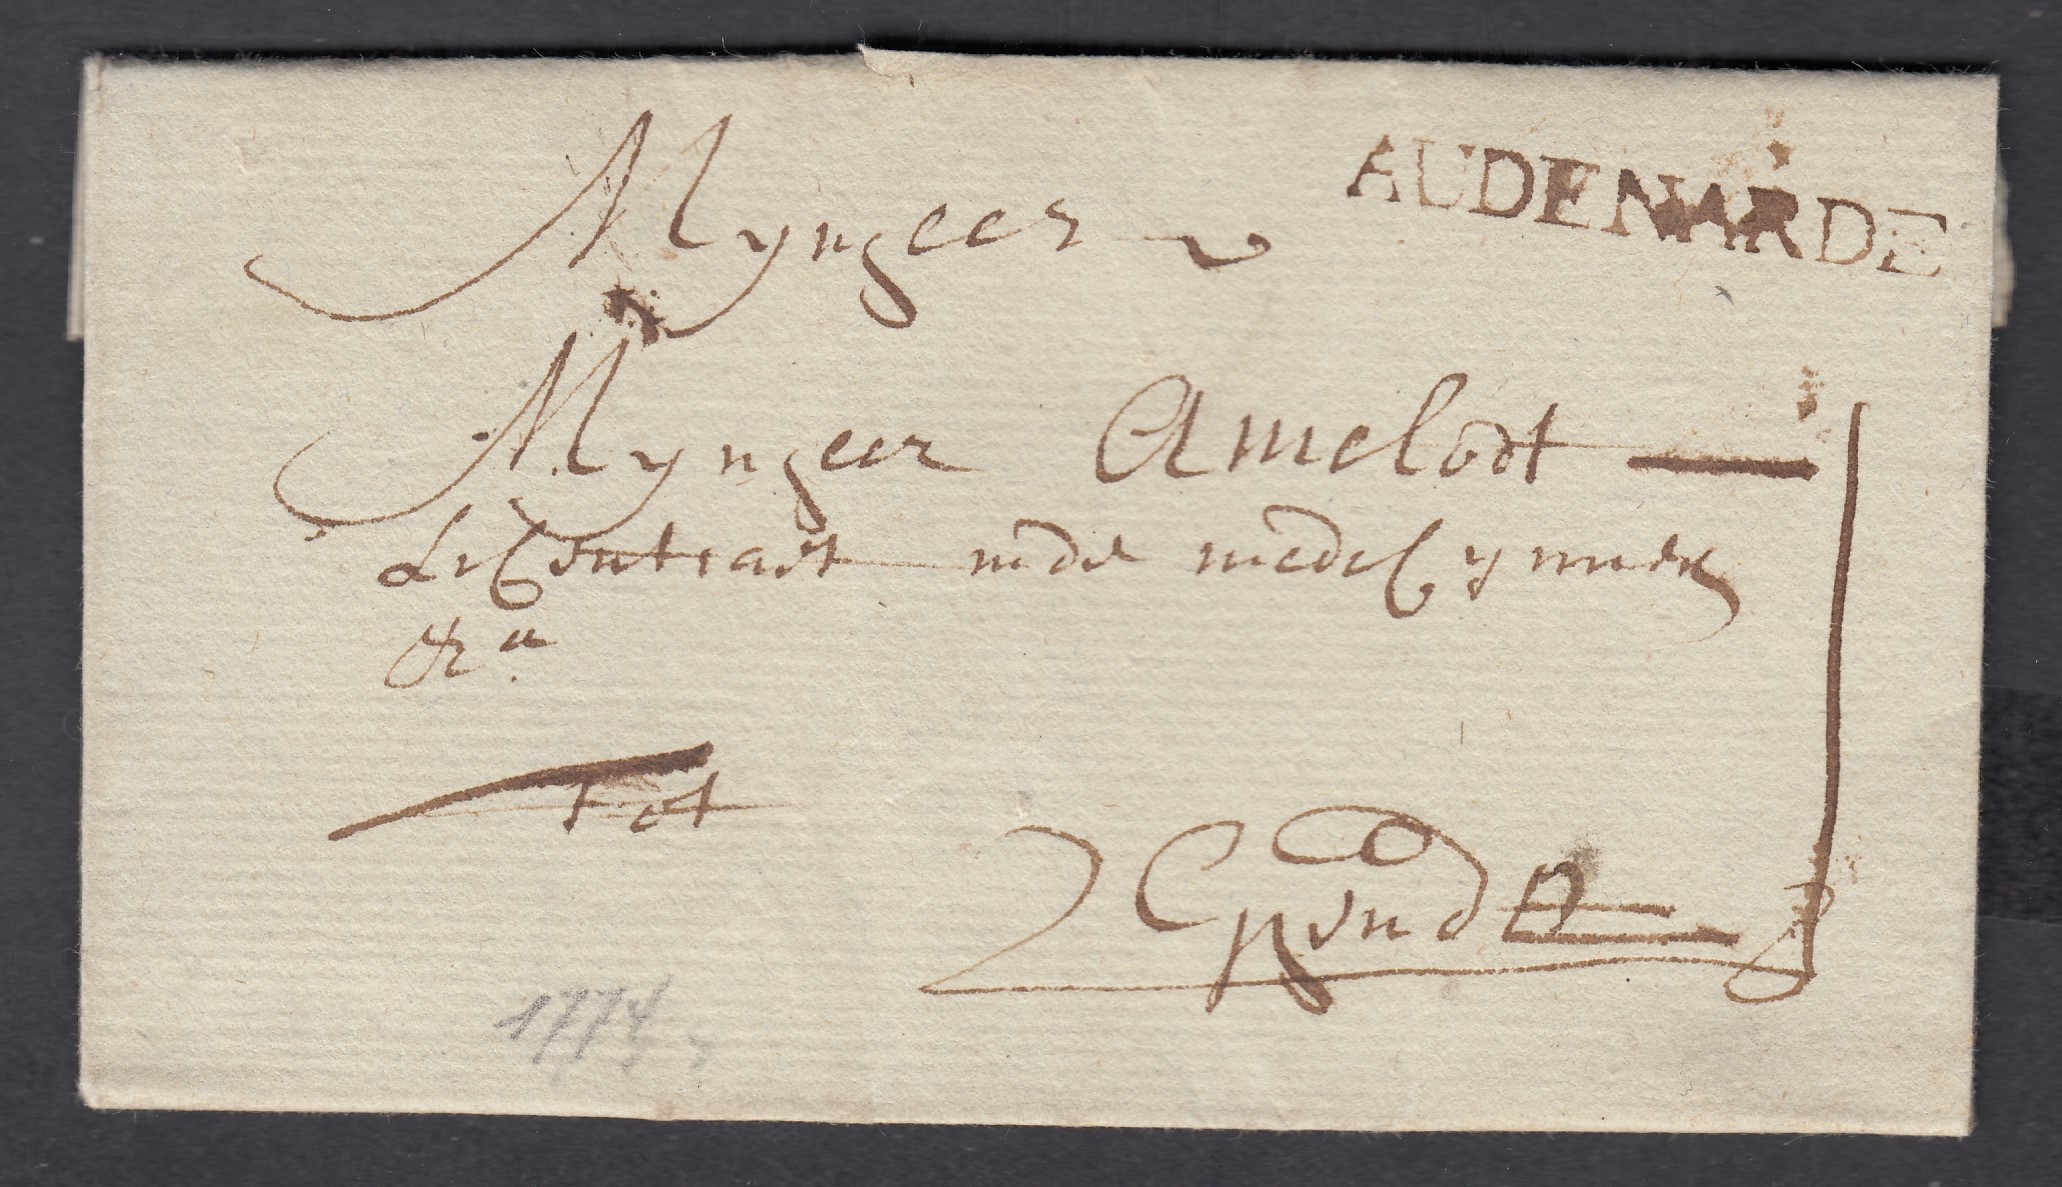 AUDENARDE
Mynheer
Mynheer Amelodt
Licentiaet inde medecynnen
&ra
tot
Ghendt
1774